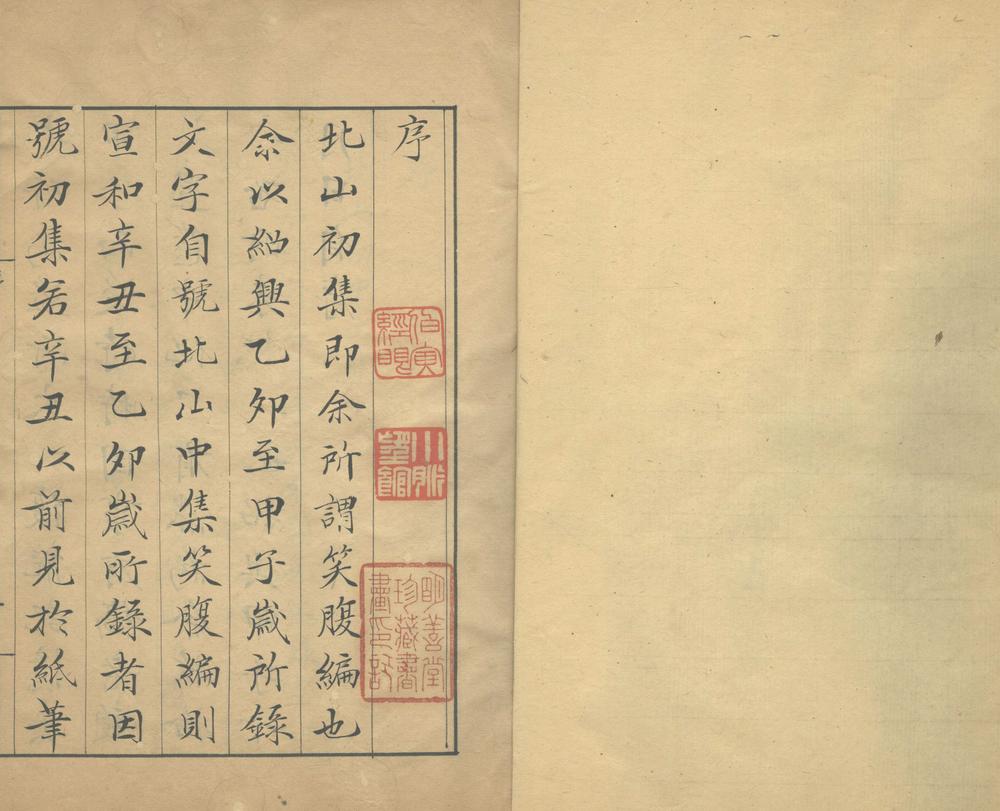 序
北山初集即余所謂笑腹編也
余以紹興乙夘至甲子歲所錄
文字自號北山中集笑腹編則
宣和辛丑至乙夘歲所錄者因
號初集若辛丑以前見於紙筆
伯寅經眼
明善堂珍藏書畫印記